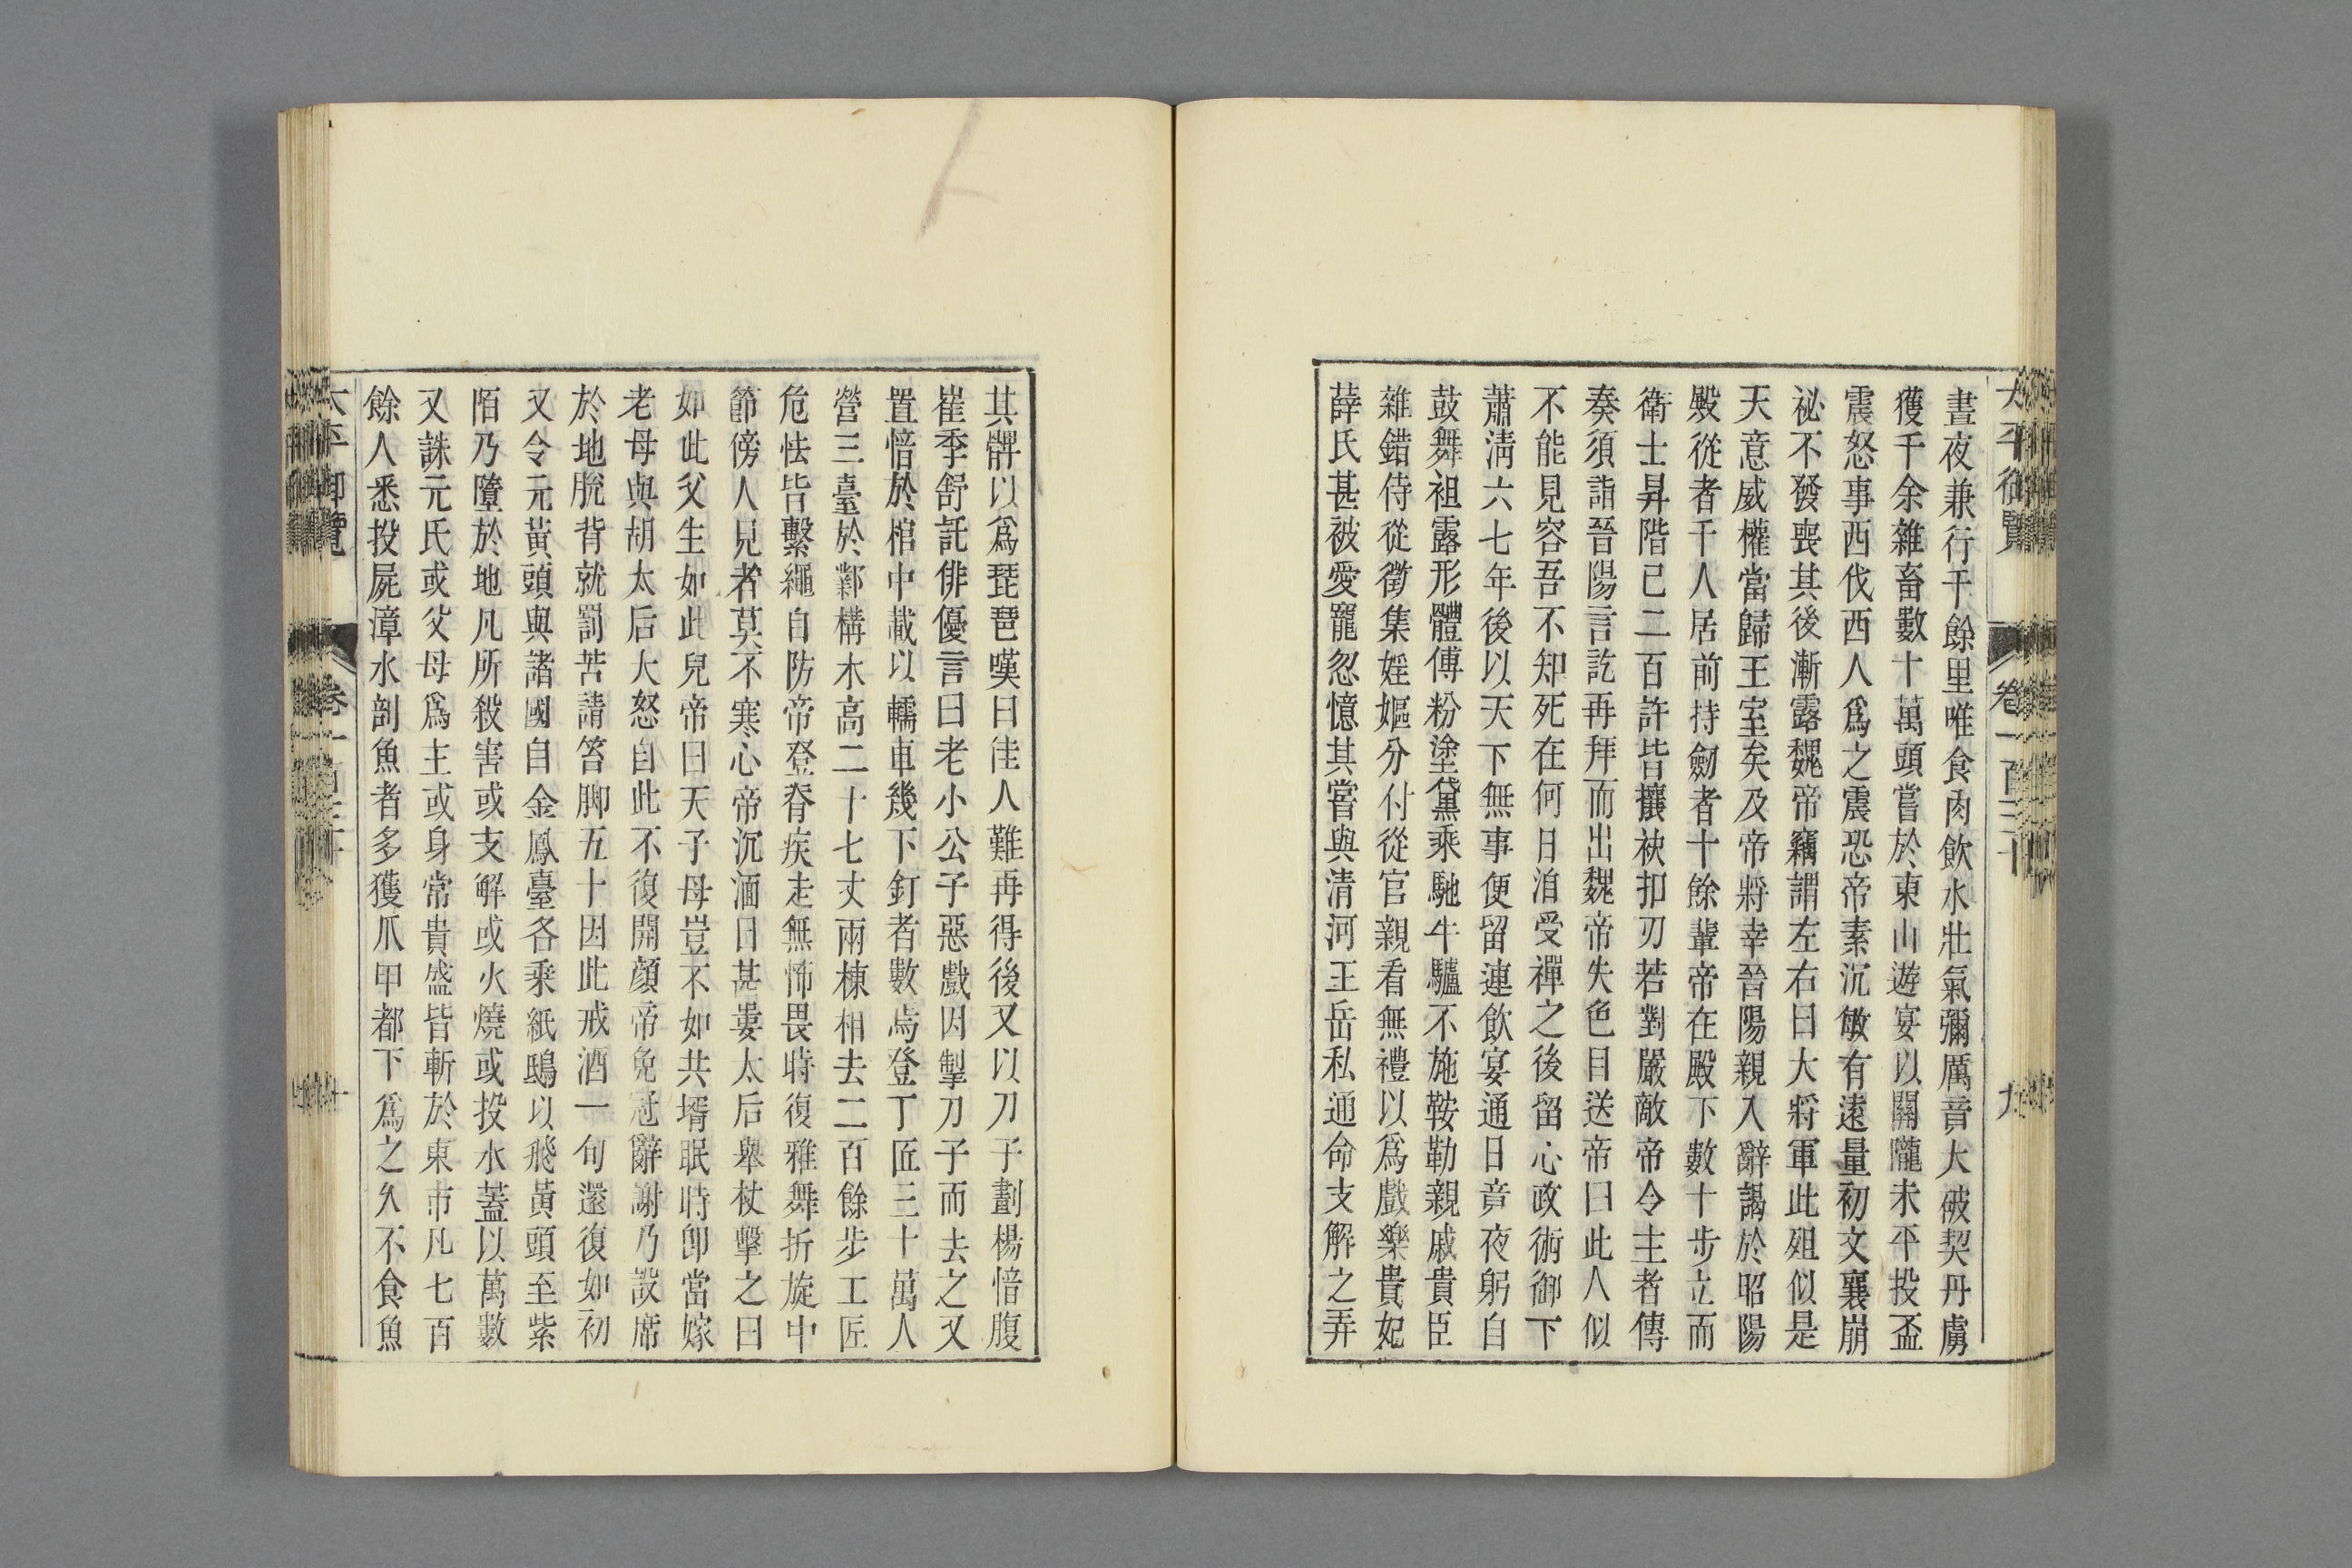 晝夜兼行千餘里唯食肉飲水壯氣彌厲音大破契丹虜
獲千余雜畜數十萬頭嘗於東山遊宴以關隴未平投盃
震怒事西伐西人爲之震恐帝素沉敏有遠量初文襄崩
祕不發喪其後漸露魏帝竊謂左右曰大將軍此殂似是
天意威權當歸王室矣及帝將幸晉陽親入辭謁於昭陽
殿從者千人居前持劒者十餘輩帝在殿下數十步立而
衛士昇階已二百許皆攘袂扣刃若對嚴敵帝令主者傳
奏須詣晉陽言訖再拜而出魏帝失色目送帝曰此人似
不能見容吾不知死在何日洎受禪之後留心政術御下
蕭清六七年後以天下無事便留連飲宴通日竟夜躬自
鼓舞袒露形體傅粉塗黛乘馳牛驢不施鞍勒親戚貴臣
雜錯侍從徵集婬嫗分付從官親看無禮以爲戲樂貴妃
薛氏甚被愛寵忽憶其嘗與清河王岳私通命支解之弄
其髀以爲琵琶嘆曰佳人難再得後又以刀子劃楊愔腹
崔季舒託俳優言曰老小公子惡戲因掣刀子而去之又
置愔於棺中載以轜車幾下釘者數焉登丁匠三十萬人
營三臺於鄴構木高二十七丈兩棟相去二百餘步工匠
危怯皆繫繩自防帝登脊疾走無怖畏時復雅舞折旋中
節傍人見者莫不寒心帝沉湎日甚婁太后舉杖擊之曰
如此父生如此兒帝曰天子母豈不如共壻眠時卽當嫁
老母與胡太后大怒自此不復開顔帝免冠辭謝乃設席
於地脫背就罰苦請笞脚五十因此戒酒一旬還復如初
又令元黃頭與諸國自金鳳臺各乘紙鴟以飛黃頭至紫
陌乃墮於地凡所殺害或支解或火燒或投水蓋以萬數
又誅元氏或父母爲主或身常貴盛皆斬於東市凡七百
餘人悉投屍漳水剖魚者多獲爪甲都下爲之久不食魚